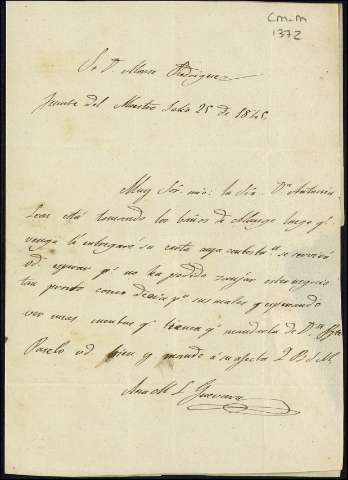 CM-M
1372
Sr. D. Marco Rodriguez
Fuente del Maestro Julio 25 de 1845
Muy Sor. mio: la Sra. Da. Antonia
Leas está tomando los baños de Alange luego q.
venga le entregaré su carta cuya contestn. se servirá
vd. esperar ps. no ha podido zanjar este negocio
tan pronto como decia pr. sus males y esperando
ver unas cuentas q. tienen q. mandarla de
Paselo vd. bien y mande á su afecta. Q B S M.
Ana M. L Guevara